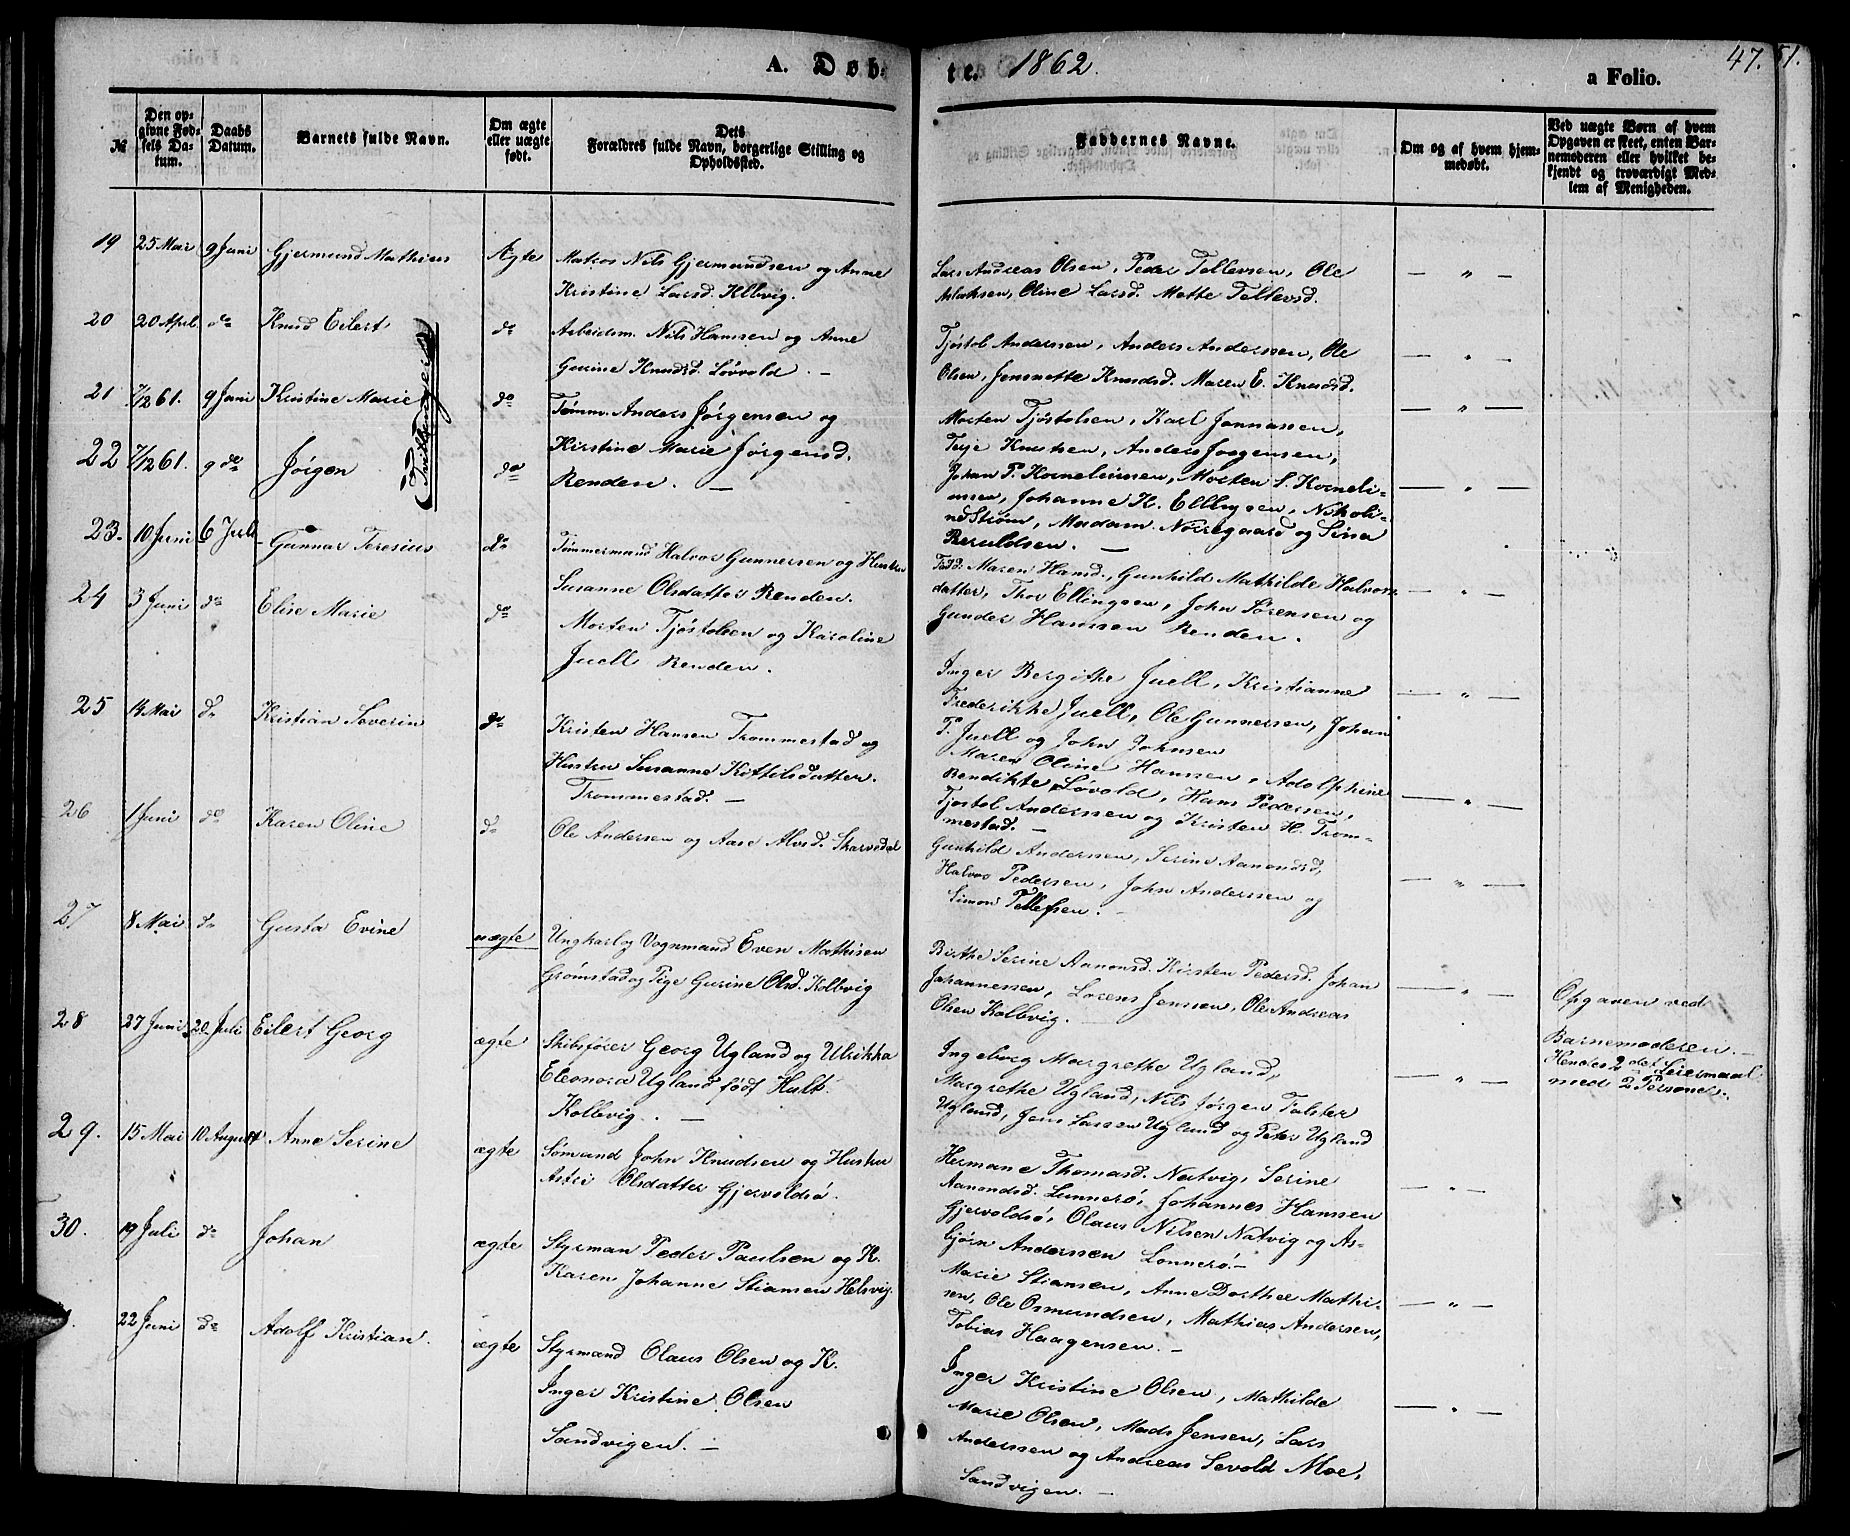 A. Døb-
te. 1862.
a Folio.
47.
51.
№
Den op-
givne Fød-
sels Da-
tum.
Daabs
Datum.
Barnets fulde Navn.
Om ægte
eller uægte
født.
Dets
Forældres fulde Navn, borgerlige Stilling og
Opholdssted.
Faddernes Navne.
Om og af hvem hjem-
medøbt.
Ved uægte Børn af hvem
Opgaven er skeet, enten Bar-
nemoderen eller hvilket be-
kjendt og troværdigt Med-
lem af Menigheden.
19 25 Mai 9 Juni Gjermund Mathius Ægte
Matros Nils Gjermundsen og Anne
Kristine Larsd. Klbvig.
Lars Andreas Olsen, Peder Tellevsen, Ole
Aslaksen, Oline Larsd. Mette Tellevsd.
— " —
20 20 April do Knud Eilert do
Arbeidsm. Nils Hansen og Anne
Gurine Knudsd. Løvvold. —
Tjøstol Anderssen, Anders Anderssen, Ole
Olsen, Jensnette Knudsd. Maren E. Knudsd.
— " —
21 7/12 61. 9 Juni Kristine Marie do
Tvillinger
Tømm. Anders Jørgensen og
Kirstine Marie Jørgensd.
Renden. —
Morten Tjøstolsen, Karl Jonnassen,
Terje Knutsen, Anders Jørgensen,
— " —
22 7/12 61. 9 do Jørgen do
Johan P. Korneliussen, Morten S. Korneli-
ussen, Johanne K. Ellingsen, Nikoli-
ne Strøm, Madam Nørregaard og Sina
Beruldsen. —
— " —
23. 10 Juni 6 Juli Gunnar Teresius do
Tømmermand Halvor Gunnersen og Hustru
Susanne Olsdatter Renden.
Fadd. Maren Hansd., Gunhild Mathilde Halvors-
datter, Thor Ellingsen, John Sørensen og
Gunder Hanssen Renden.
— " —
24 3 Juni do Elise Marie do
Morten Tjøstolsen og Karoline
Juell Renden.
Inger Bergithe Juell, Kristianne
Frederikke Juell, Ole Gunnersen, Johan
T. Juell og John Johnsen
— " —
25 14 Mai do Kristian Soverin do
Kristen Hansen Trommestad og
Hustru Susanne Kittilsdatter.
Trommestad. —
Maren Oline Hanssen, Adolphine
Bendikte Løvold, Hans Pedersen,
Tjøstol Anderssen og Kristen H. Trom-
mestad. —
— " —
26 1 Juni do Karen Oline do
Ole Andersen og Aase Alvsd. Skarvedal
Gunhild Anderssen, Serine Aanonsd,
Halvor Pedersen, John Anderssen og
Simon Tellefsen. —
— " —
27 8 Mai do Gusta Evine uægte
Ungkarl og Vognmand Even Mathisen
Grømstad og Pige Gurine Olsd. Kolbvig
Birthe Serine Aanonsd. Kirsten Pedersd. Johan
Johannessen, Lorens Jenssen, Ole Andreas
Olsen Kolbvig. —
— " —
Opgaven ved
Barnemoderen. —
Hendes 2det Leiermaal
med 2 Personer.
28 27 Juni 20 Juli Eilert Georg ægte
Skibsfører Georg Ugland og Ulrikka
Eleonora Ugland født Hult.
Kolbvig. —
Ingeborg Margrethe Ugland,
Margrethe Ugland, Nils Jørgen Falster
Ugland, Jens Larsen Ugland og Peter Ugland
— " —
29. 15 Mai 10 August Anne Serine ægte
Sømand John Knudsen og Hustru
Astri Olsdatter Gjervoldsø.
Hermane Thomasd. Natvig, Serine
Aanondsd. Lunnerø, Johannes Hanssen
Gjervoldsø, Olaus Nilsen Natvig og As-
bjørn Anderssen Lonnerø. —
— " —
30. 19 Juli do Johan ægte
Styrman Peder Paulsen og K.
Karen Johanne Stiansen Helsvig.
Marie Stiansen, Anne Dorthea Mathi-
sen, Ole Osmundsen, Mathias Andersen,
Tobias Haagensen. —
— " —
22 Juni do Adolf Kristian. ægte
Styrmand Olaus Olsen og K.
Inger Kristine Olsen
Sandvigen. —
Inger Kristine Olsen, Mathilde
Marie Olsen, Mads Jensen, Lars
Anderssen og Andreas Sevold Moe,
Sandvigen. —
— " —